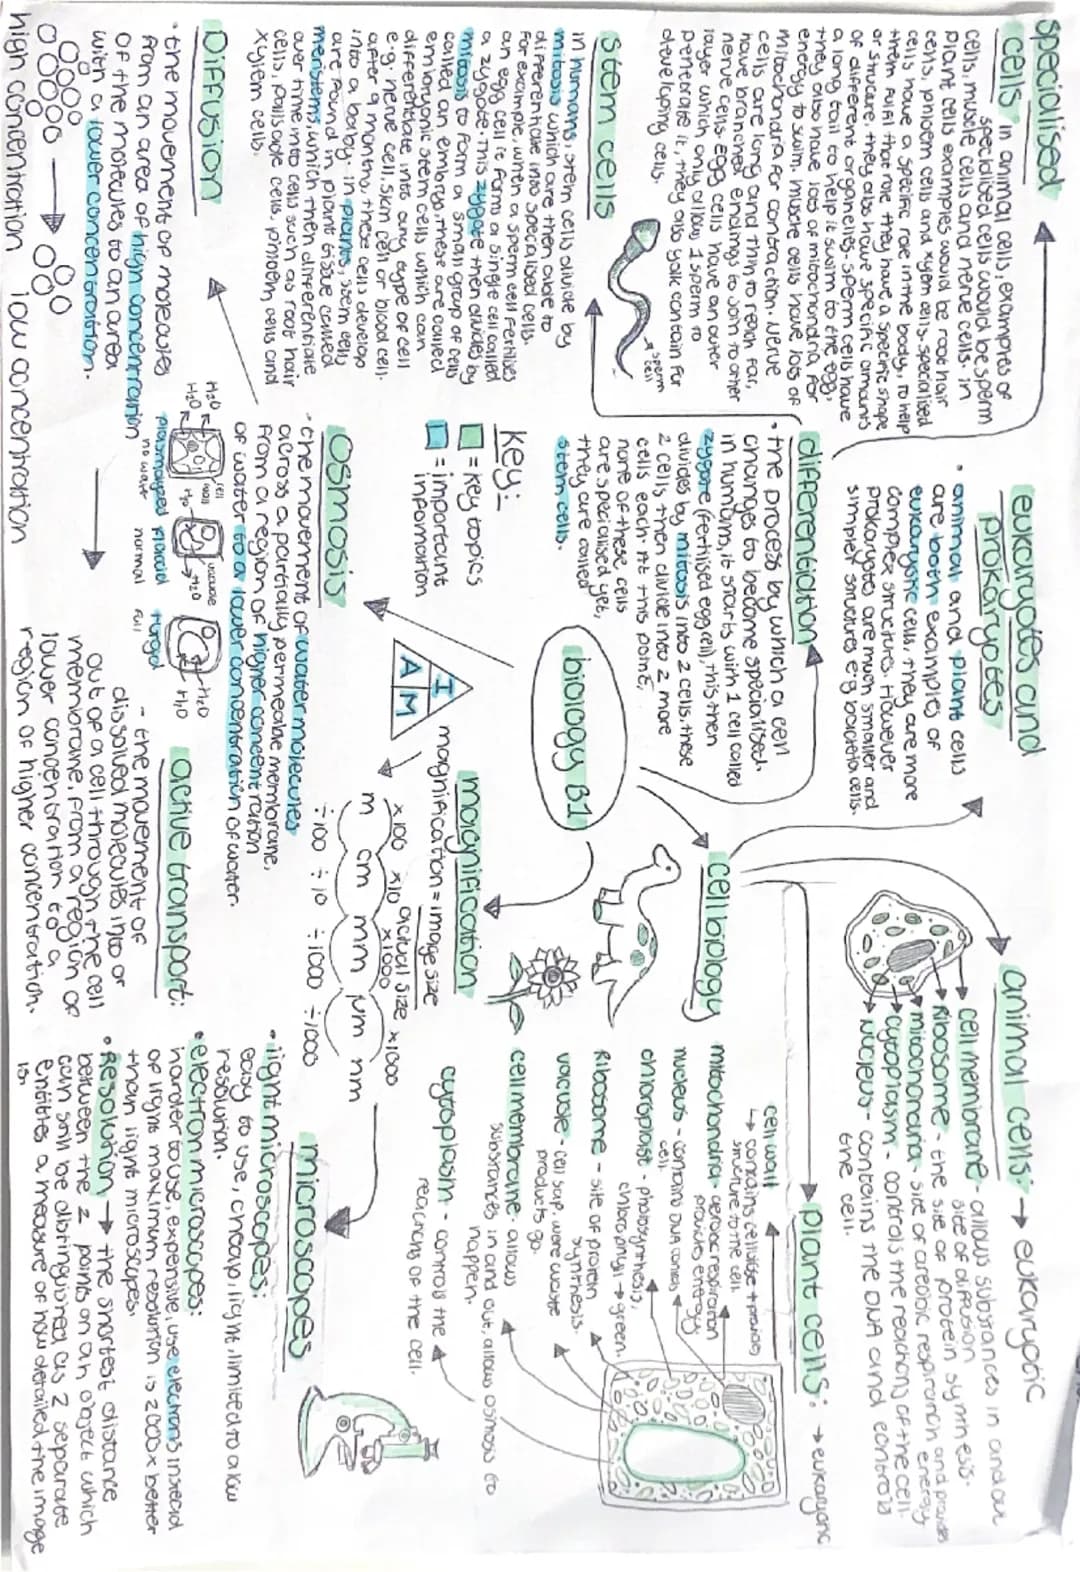 specialised
cells: in animal cells, examples of
specialised cells would be sperm
cells, muscle cells and nerve cells. in
plant cells examples would be root hair
cells, phloem cells and xylem cells. specialised
cells have a specific role in the body. To help
them fulfil that role they have a specific shape
or structure. they also have specific amounts
of different organelles. sperm cells have
a long tail to help it swim to the egg,
they also have lots of mitochondria for
energy to swim. muscle cells have lots of
mitochondria for contraction. Nerve
cells are long and thin to reach far,
have branched endings to join to other
nerve cells. egg cells have an outer
layer which only allows 1 sperm to
penetrate it, they also yolk contain for
developing cells.
sperm
cell
stem cells
in humans, stem cells divide by
mitosis which are then able to
differentiate into specialised cells.
for example, when a sperm cell fertilises
an egg cell it forms a single cell called
a zygote. This zygote then divides by
mitosis to form a small group of cells
called an embryo, these are called
embryonic stem cells which can
differentiate into any type of cell
e.g. nerve cell, skin cell or blood cell.
after 9 months, these cells develop
into a baby. in plants, stem cells
are found in plant tissue called
meristems, which then differentiate
over time into cells such as root hair
cells, palisade cells, phloem cells and
xylem cells.
Diffusion
• the movement of molecules
from an area of high concentration
of the molecules to an area
with a lower concentration.
high concentration
low concentration
eukaryotes and
prokaryotes
• animal and plant cells
are both examples of
eukaryotic cells, they are more
complex structures. However
prokaryotes are much smaller and
simpler structures e.g bacteria cells.
differentiation
• the process by which a cell
changes to become specialised.
in humans, it starts with 1 cell called
zygote (fertilised egg cell), this then
divides by mitosis into 2 cells. these
2 cells then divide into 2 more
cells each. At this point,
none of these cells
are specialised yet,
they are called
stem cells.
key:
= key topics
= important
information
biology B1
osmosis
• the movement of water molecules
across a partially permeable membrane,
from a region of higher concentration
of water to a lower concentration of water.
H2O
H2O
cell
wall
H2O
plasmolysed
no water
flaccid
normal
vacuole
H2O
turgid
full
H2O
H2O
active transport:
- the movement of
dissolved molecules into or
out of a cell through the cell
membrane, from a region of
lower concentration to a
region of higher concentration.
magnification
I
A M
magnification = image size
actual size
x100 x10 x1000 x1000
m cm mm µm nm
÷100 ÷10 ÷1000 ÷1000
cell biology
animal cells: → eukaryotic
cell membrane - allows substances in and out
site of diffusion
Ribosome - the site of protein synthesis.
mitochondria - site of aerobic respiration and provides energy
cytoplasm - controls the reactions of the cell.
Nucleus - contains the DNA and controls
the cell.
plant cells: → eukaryotic
cell wall
→ contains cellulose + provides
structure to the cell.
mitochondria - aerobic respiration
provides energy
nucleus - contains DNA controls
cell.
chloroplast - photosynthesis,
chlorophyll → green.
Ribosome - site of protein
synthesis.
vacuole - cell sap, were waste
products go.
cell membrane - allows
substances in and out, allows osmosis to
happen.
cytoplasm - controls the
reactions of the cell.
microscopes
• light microscopes:
easy to use, cheap, light, limited to a low
resolution.
• electron microscopes:
harder to use, expensive, use electrons instead
of light. maximum resolution is 2000x better
than light microscopes.
• Resolution → the shortest distance
between the 2 points on an object which
can still be distinguished as 2 separate
entities a measure of how detailed the image
is.